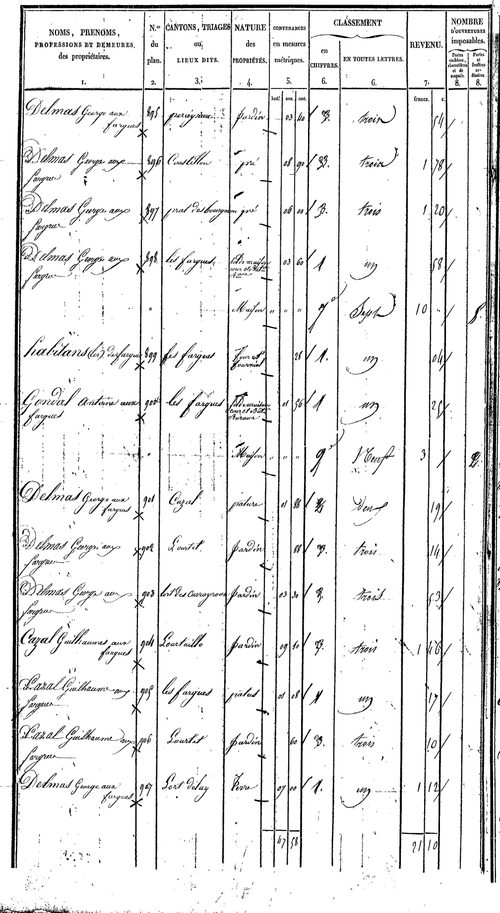 NOMS, PRENOMS, PROFESSIONS ET DEMEURES, des propriétaires. N.os du plan. CANTONS, TRIAGES ou LIEUX DITS. NATURE des PROPRIÉTÉS. CONTENANCES en mesures métriques. CLASSEMENT en CHIFFRES. EN TOUTES LETTRES. REVENU. NOMBRE D'OUVERTURES imposables.
1. 2. 3. 4. 5. 6. 6. 7. 8. 8.
francs. c.
Delmas George aux fargues 895 Jardin 03 40 3. trois 54
Delmas George aux fargues 896 pré 08 90 3. trois 1 78
Delmas George aux fargues 897 pré 06 00 3. trois 1 20
Delmas George aux fargues 898 les fargues 03 60 1 un 58
" Maison " " " 7e Sept 10 " 8.
habitans (les) de fargues 899 les fargues 28 1. un 04
Gondal Antoine aux fargues 900 les fargues 01 56 1 un 25
" Maison " " " 9e Neuf 3 " 2.
Delmas George aux fargues 901 Cazal pature 01 88 2 Deux 19
Delmas George aux fargues 902 Lourtet Jardin 88 3. trois 14
Delmas George aux fargues 903 Jardin 03 30 3. trois 53
Cazal Guilhaume aux fargues 904 Jardin 09 10 3. trois 1 46
Cazal Guilhaume aux fargues 905 les fargues patus 01 08 1 un 17
Cazal Guilhaume aux fargues 906 Lourtet Jardin 60 3. trois 10
Delmas George aux fargues 907 Terre 07 00 1. un 1 12
47 58 21 10